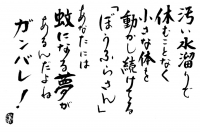 汚い水溜りで
休むことなく
小さな体を
動かし続けてる
「ぼうふらさん」
あなたには
蚊になる夢が
あるんだよね
ガンバレ!